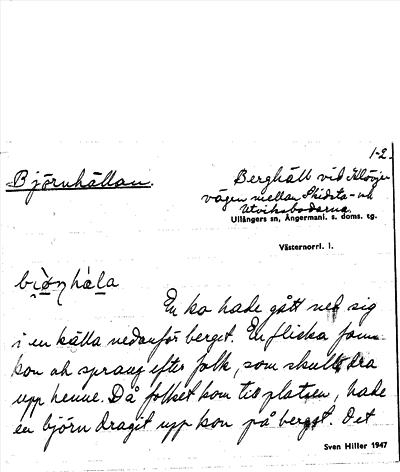 1-2.
Björnhällan.
Berghäll vid
vägen mellan Skidsta- och
Utviksbodarna
Ullångers sn, Ångermanl. s. doms. tg.
Västernorrl. l.
En ko hade gått ned sig
i en källa nedanför berget. En flicka fann
kon och sprang efter folk, som skulle dra
upp henne. Då folket kom till platsen, hade
en björn dragit upp kon på berget. Det
Sven Hiller 1947